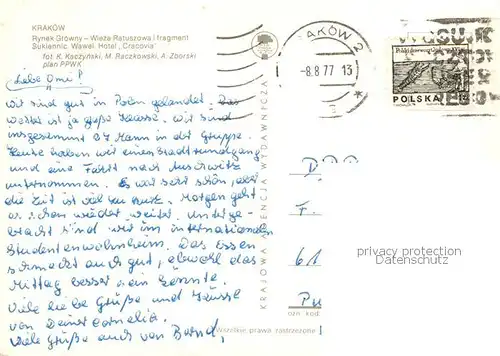 KRAKÓW
Rynek Główny – Wieża Ratuszowa i fragment
Sukiennic. Wawel. Hotel „Cracovia"
fot: K. Kaczyński, M. Raczkowski, A. Zborski
plan PPWK
Liebe Omi!
Wir sind gut in Polen gelandet. Das
Wetter ist ja große Klasse. Wir sind
insgesamt 27 Mann in der Gruppe.
Heute haben wir einen Stadtrundgang
und eine Fahrt nach Auschwitz
unternommen. Es war sehr schön, aber
die Zeit ist viel zu kurz. Morgen geht
es schon wieder weiter. Unterge-
bracht sind wir im internationalen
Studentenwohnheim. Das Essen
schmeckt auch gut, obwohl das
Mittag besser sein könnte.
Viele liebe Grüße und Küssl
von Deiner Cornelia.
Viele Grüße auch von Bernd.
KRAJOWA AGENCJA WYDAWNICZA
Wszelkie prawa zastrzeżone
KRAKÓW 2
-8.8.77 13
POLSKA
D
F.
61
Pu
ozn. kod
privacy protection
Datenschutz